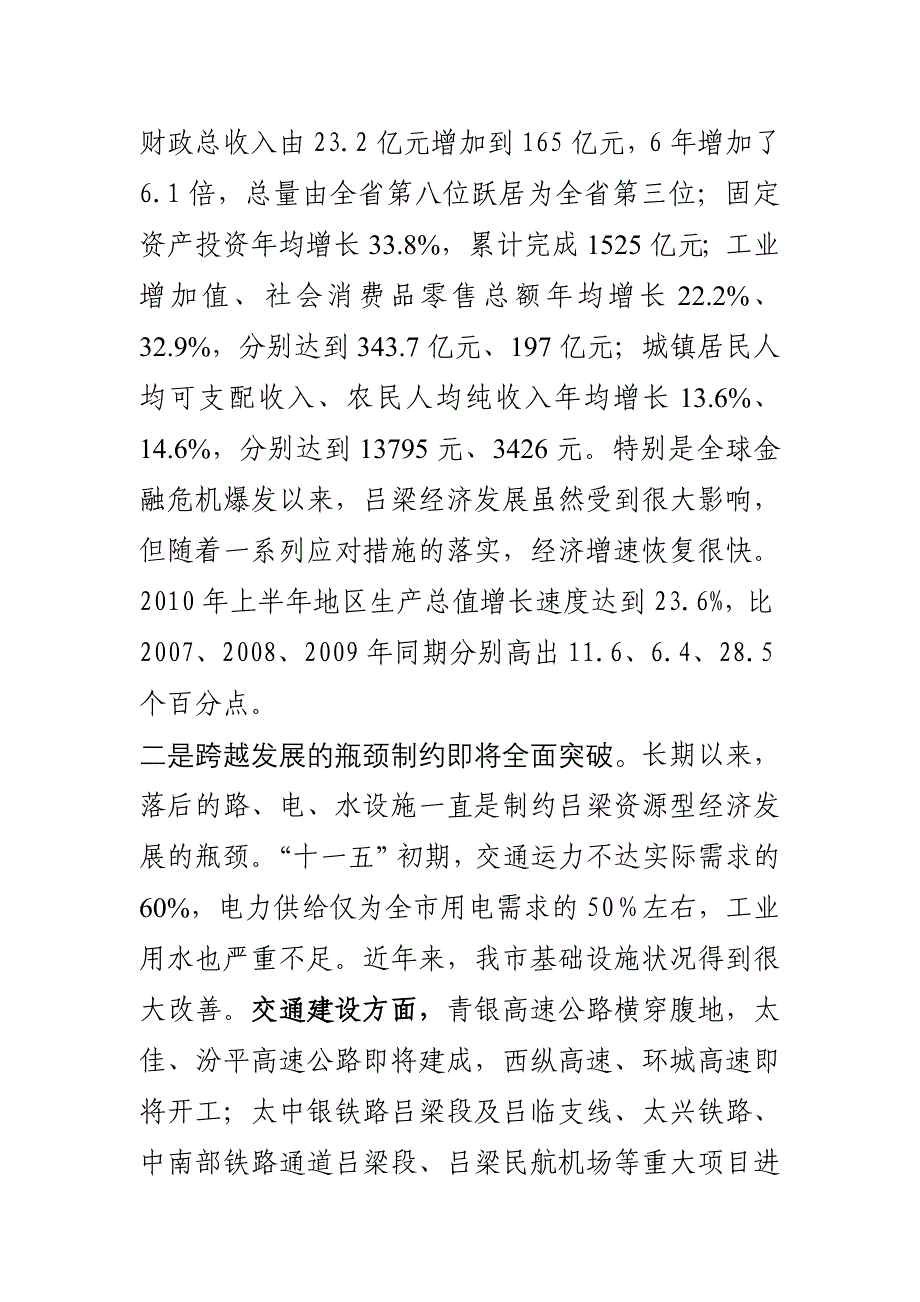 财政总收入由 23.2 亿元增加到 165 亿元，6 年增加了
6.1 倍，总量由全省第八位跃居为全省第三位；固定
资产投资年均增长 33.8%，累计完成 1525 亿元；工业
增加值、社会消费品零售总额年均增长 22.2%、
32.9%，分别达到 343.7 亿元、197 亿元；城镇居民人
均可支配收入、农民人均纯收入年均增长 13.6%、
14.6%，分别达到 13795 元、3426 元。特别是全球金
融危机爆发以来，吕梁经济发展虽然受到很大影响，
但随着一系列应对措施的落实，经济增速恢复很快。
2010 年上半年地区生产总值增长速度达到 23.6%，比
2007、2008、2009 年同期分别高出 11.6、6.4、28.5
个百分点。
二是跨越发展的瓶颈制约即将全面突破。长期以来，
落后的路、电、水设施一直是制约吕梁资源型经济发
展的瓶颈。“十一五”初期，交通运力不达实际需求的
60%，电力供给仅为全市用电需求的 50%左右，工业
用水也严重不足。近年来，我市基础设施状况得到很
大改善。交通建设方面，青银高速公路横穿腹地，太
佳、汾平高速公路即将建成，西纵高速、环城高速即
将开工；太中银铁路吕梁段及吕临支线、太兴铁路、
中南部铁路通道吕梁段、吕梁民航机场等重大项目进